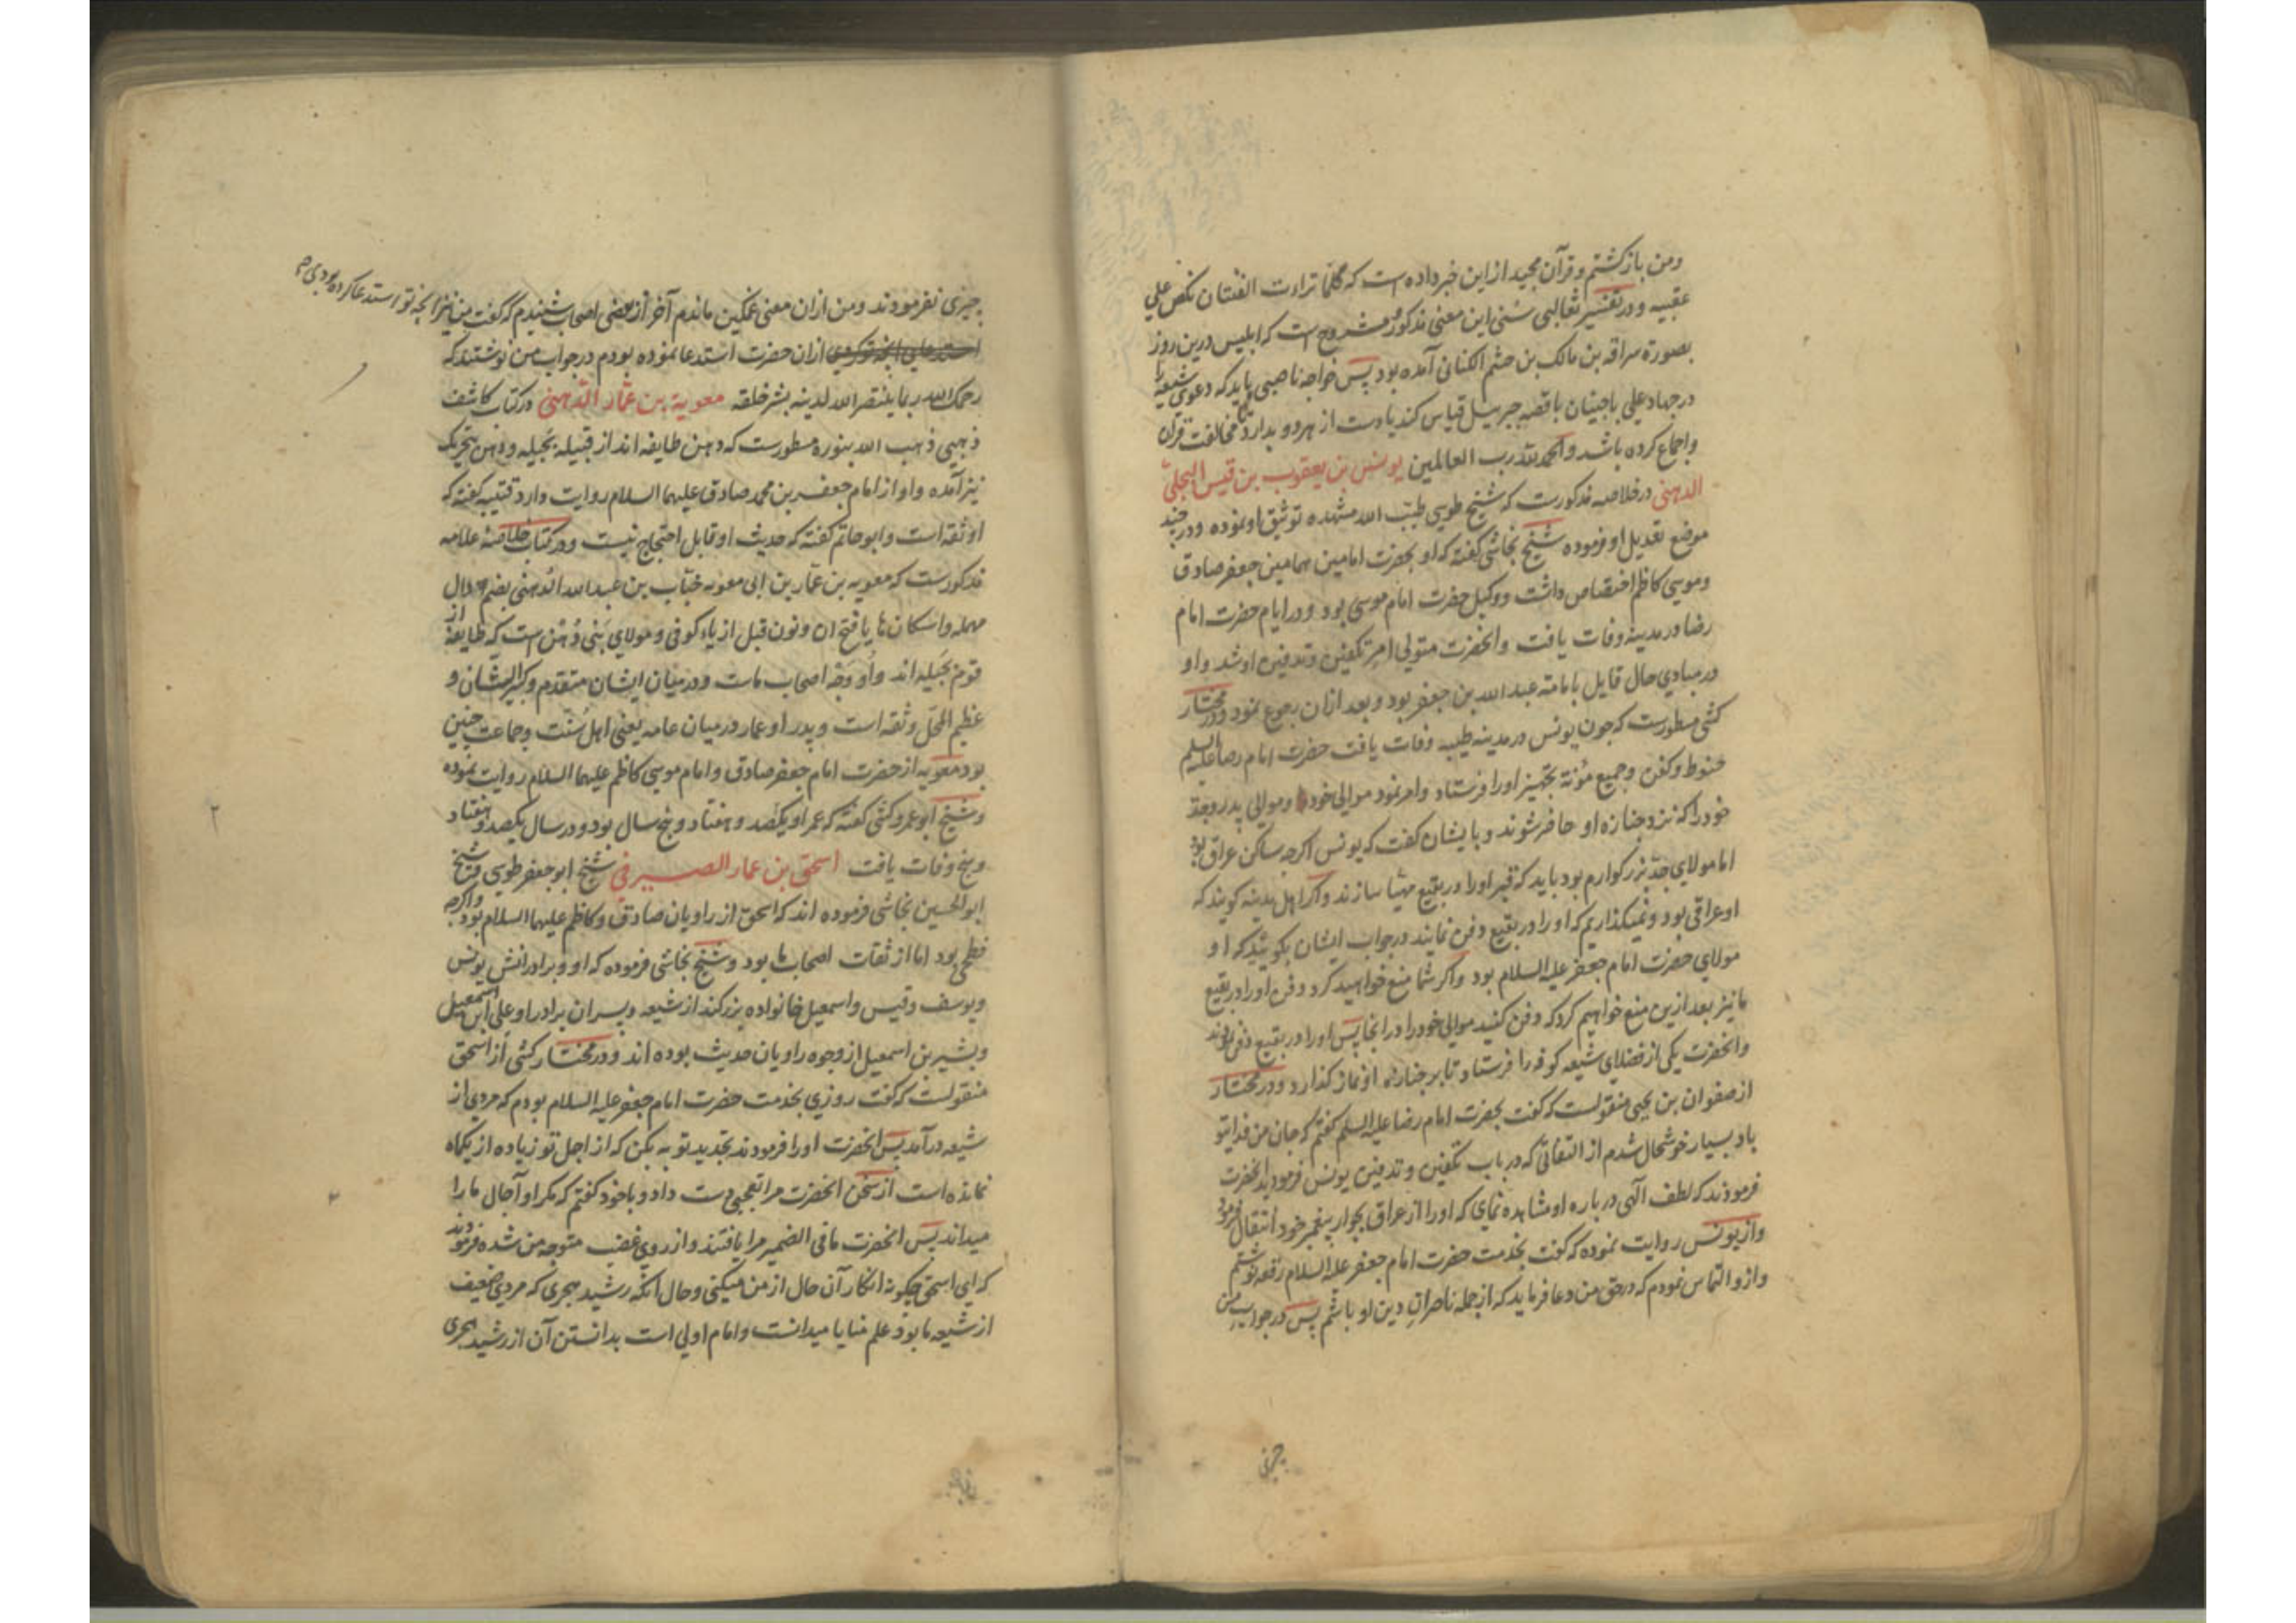 ومن بازكشتم وقرآن مجيد ازاين خبرداده است كه فلما تراءت الفئتان نكص على
عقبيه ودرتفسير ثعالبى سنى اين معنى مذكور ومشروح است كه ابليس درين روز
بصورة سراقه بن مالك بن جشم الكنانى آمده بود پس خواجه ناصبى بايدكه دعوى شيعه را
درجهاد على باجنيان باقصه جبرئيل قياس كند يادست ازهردو بدارد تا مخالفت قرآن
واجماع كرده باشد والحمد لله رب العالمين يونس بن يعقوب بن قيس البجلى
الدهنى درخلاصه مذكورست كه شيخ طوسى طيب الله مشهده توثيق اونموده ودرچند
موضع تعديل اوفرموده شيخ نجاشى كفته كه او بحضرت امامين همامين جعفر صادق
وموسى كاظم اختصاص داشت ووكيل حضرت امام موسى بود ودرايام حضرت امام
رضا درمدينه وفات يافت وانحضرت متولى امر تكفين وتدفين اوشد واو
درمبادى حال قايل بامامة عبد الله بن جعفر بود وبعد ازان رجوع نمود ودرمختار
كشى مسطورست كه چون يونس درمدينه طيبه وفات يافت حضرت امام رضا عليه السلم
حنوط وكفن وجميع مؤنة تجهيز اورا فرستاد وامرنمود موالى خود وموالى پدر وجد
خودرا كه نزد جنازه او حاضر شوند وبايشان كفت كه يونس اكرچه ساكن عراق بود
اما مولاى جد بزركوارم بود بايد كه قبر اورا دربقيع مهيا سازند واكر اهل مدينه كويند كه
اوعراقى بود ونميكذاريم كه اورا دربقيع دفن نمايند درجواب ايشان بكوييد كه او
مولاى حضرت امام جعفر عليه السلام بود واكر شما منع خواهيد كرد دفن اورا دربقيع
مانيز بعد ازين منع خواهيم كرد كه دفن كنيد موالى خودرا درانجا پس اورا دربقيع دفن نمودند
وانحضرت يكى ازفضلاى شيعه كوفه را فرستاد تا برجنازه اونماز كذارد ودرمختار
ازصفوان بن يحيى منقولست كه كفت بحضرت امام رضا عليه السلم كفتم كه جان من فداى تو
باد بسيار خوشحال شدم از التفاتى كه درباب تكفين وتدفين يونس فرموديد انحضرت
فرمودند كه لطف الهى درباره او مشاهده نماى كه اورا ازعراق بجوار پيغمبر خود انتقال فرمود
وازيونس روايت نموده كه كفت بخدمت حضرت امام جعفر عليه السلام رقعه نوشتم
وازو التماس نمودم كه درحق من دعا فرمايد كه ازجمله ناصران دين او باشم پس درجواب من
چيزى
چيزى نفرمودند ومن ازان معنى غمكين ماندم آخر ازبعضى اصحاب شنيدم كه كفت من نيز آنچه تو استدعا كرده بودى
ازان حضرت استدعا نموده بودم درجواب من نوشتند كه
رحمك الله ربما ينتصر الله لدينه بشر خلقه معوية بن عمار الدهنى دركتاب كاشف
ذهبى ذهب الله بنوره مسطورست كه دهن طايفه اند ازقبيله بجيله ودهن بتحريك
نيز آمده واو از امام جعفر بن محمد صادق عليهما السلام روايت دارد قتيبه كفته كه
اوثقه است وابوحاتم كفته كه حديث او قابل احتجاج نيست ودركتاب خلاصه علامه
مذكورست كه معويه بن عمار بن ابى معويه خباب بن عبد الله الدهنى بضم دال
مهمله واسكان ها يا فتح ان ونون قبل ازياء كوفى ومولاى بنى دهن است كه طايفه از
قوم بجيله اند واو وجه اصحاب ماست ودرميان ايشان متقدم وكبير الشان و
عظيم المحل وثقه است وپدر او عمار درميان عامه يعنى اهل سنت وجماعت چنين
بود معويه ازحضرت امام جعفر صادق وامام موسى كاظم عليهما السلام روايت نموده
وشيخ ابوعمرو كشى كفته كه عمر او يكصد وهفتاد وپنج سال بود ودرسال يكصد وهفتاد
وپنج وفات يافت اسحق بن عمار الصيرفى شيخ ابوجعفر طوسى وشيخ
ابوالحسين نجاشى فرموده اند كه اسحق از راويان صادق وكاظم عليهما السلام بود واكرچه
فطحى بود اما ازثقات اصحاب ما بود وشيخ نجاشى فرموده كه او وبرادرانش يونس
ويوسف وقيس واسمعيل خانواده بزركند ازشيعه وپسران برادر او على ابن اسمعيل
وبشير بن اسمعيل ازوجوه راويان حديث بوده اند ودرمختار كشى از اسحق
منقولست كه كفت روزى بخدمت حضرت امام جعفر عليه السلام بودم كه مردى از
شيعه درآمد پس انحضرت اورا فرمودند تجديد توبه بكن كه از اجل تو زياده از يكماه
نمانده است ازسخن انحضرت مرا تعجبى دست داد وباخود كفتم كه مكر او آجال ما را
ميداند پس انحضرت مافى الضمير مرا يافتند واز روى غضب متوجه من شده فرمودند
كه اى اسحق چكونه انكار آن حال ازمن ميكنى وحال آنكه رشيد هجرى كه مردى ضعيف
ازشيعه ما بود علم منايا ميدانست وامام اولى است بدانستن آن از رشيد هجرى